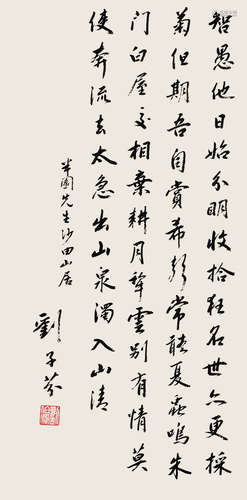 智愚他日始分明收拾狂名世亦更採
菊但期吾自賞希常夏蟲鳴朱
門白屋交相棄耕月犂雲別有情莫
使奔流去太急出山泉濁入山清
半園先生沙田山居
劉子芬